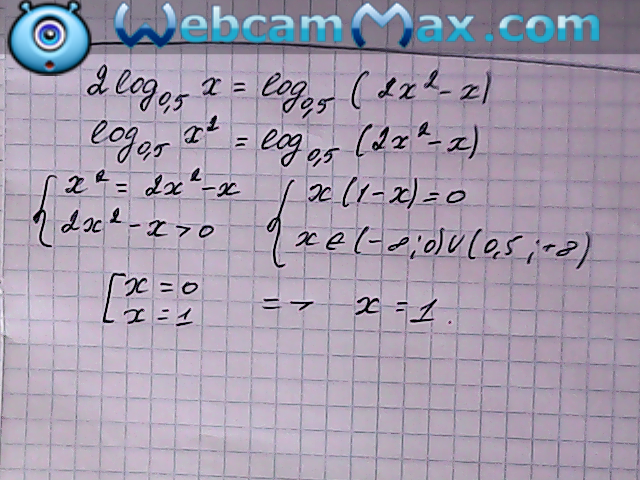 WebcamMax.com
2log₀,₅ x = log₀,₅ (2x² - x)
log₀,₅ x² = log₀,₅ (2x² - x)
{ x² = 2x² - x { x(1-x) = 0
2x² - x > 0 x ∈ (-∞; 0) ∪ (0,5; +∞)
[ x = 0
x = 1 => x = 1.